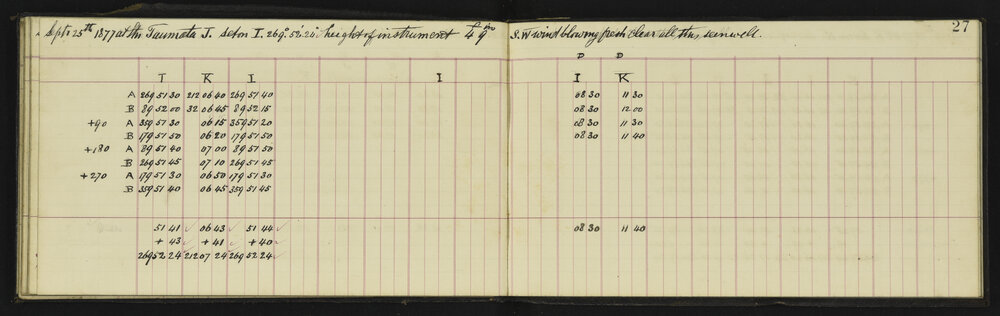 Sept. 25th 1877 at the Taumata J. set on I. 269° 52' 24" height of instrument 4' 9" S.W wind blowing fresh clear all stns seen well. 27
D D
I K I I I K
A 269 51 30 212 06 40 269 51 40 08 30 11 30
B 89 52 00 32 06 45 89 52 15 08 30 12 00
+90 A 359 51 30 06 15 359 51 20 08 30 11 30
B 179 51 50 06 20 179 51 50 08 30 11 40
+180 A 89 51 40 07 00 89 51 50
B 269 51 45 07 10 269 51 45
+270 A 179 51 30 06 50 179 51 30
B 359 51 40 06 45 359 51 45
51 41 ✓ 06 43 ✓ 51 44 ✓ 08 30 11 40
+ 43 ✓ + 41 ✓ + 40 ✓
269 52 24 ✓ 212 07 24 ✓ 269 52 24 ✓